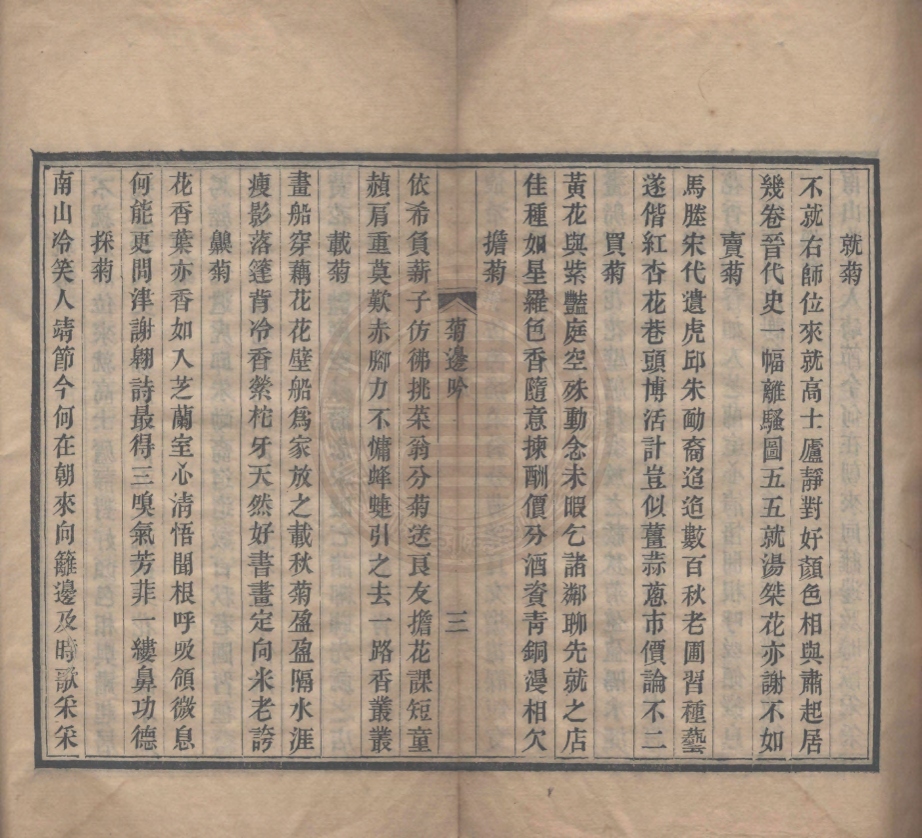 就菊
不就右師位來就高士廬靜對好顏色相與肅起居
幾卷晉代史一幅離騷圖五五就湯桀花亦謝不如
賣菊
馬塍宋代遺虎邱朱勔裔迢迢數百秋老圃習種藝
遂偕紅杏花巷頭博活計豈似薑蒜蔥市價論不二
買菊
黃花與紫豔庭空殊動念未暇乞諸鄰聊先就之店
佳種如星羅色香隨意揀酬價分酒資青銅漫相欠
擔菊
菊邊吟
三
依希負薪子仿彿挑菜翁分菊送良友擔花課短童
赬肩重莫歎赤腳力不慵蜂蜨引之去一路香叢叢
載菊
畫船穿藕花花壁船爲家放之載秋菊盈盈隔水涯
瘦影落篷背冷香縈柁牙天然好書畫定向米老誇
齅菊
花香葉亦香如入芝蘭室心清悟聞根呼吸領微息
何能更問津謝翱詩最得三嗅氣芳菲一縷鼻功德
採菊
南山冷笑人靖節今何在朝來向籬邊及時歌采采